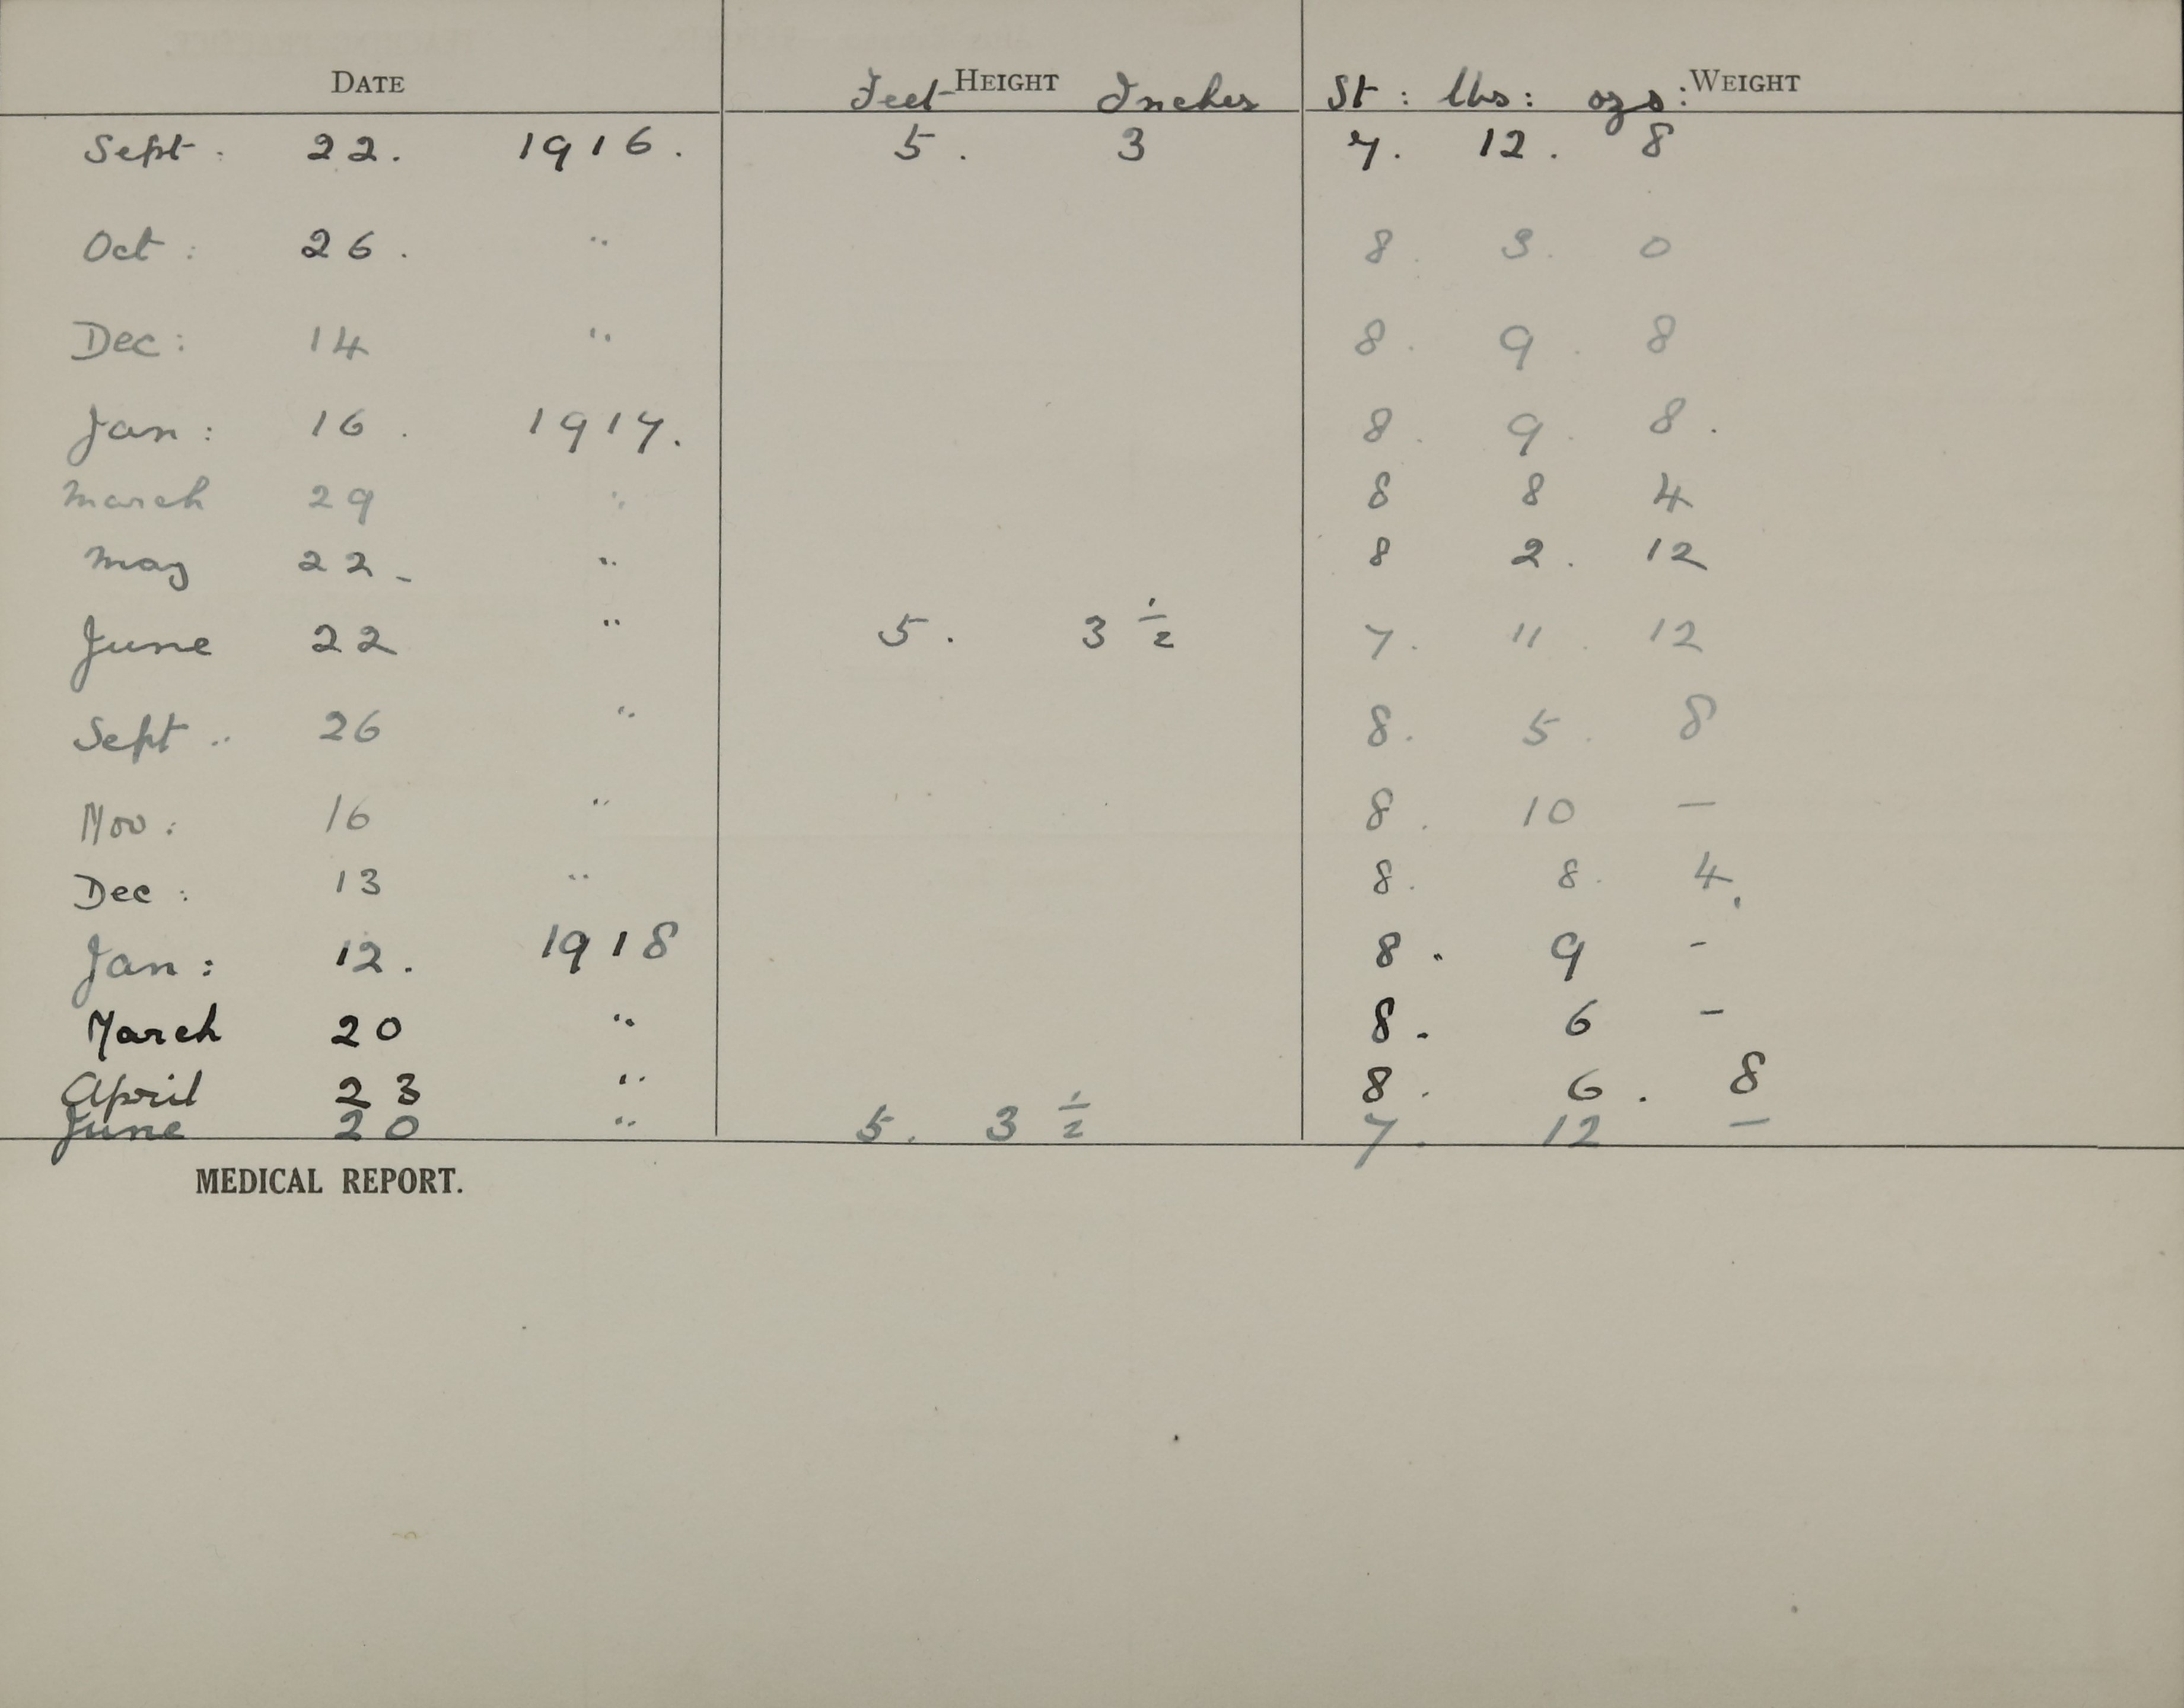 DATE Feet HEIGHT Inches St: lbs: ozs: WEIGHT
Sept: 22. 1916. 5. 3 7. 12. 8
Oct: 26. " 8. 3. 0
Dec: 14 " 8. 9. 8
Jan: 16. 1917. 8. 9. 8.
March 29 " 8 8 4
May 22- " 8 2. 12
June 22 " 5. 3 1/2 7. 11. 12
Sept.. 26 " 8. 5. 8
Nov: 16 " 8. 10 —
Dec: 13 " 8. 8. 4.
Jan: 12. 1918 8. 9 -
March 20 " 8. 6 -
April 23 " 8. 6. 8
June 20 " 5. 3 1/2 7. 12 —
MEDICAL REPORT.